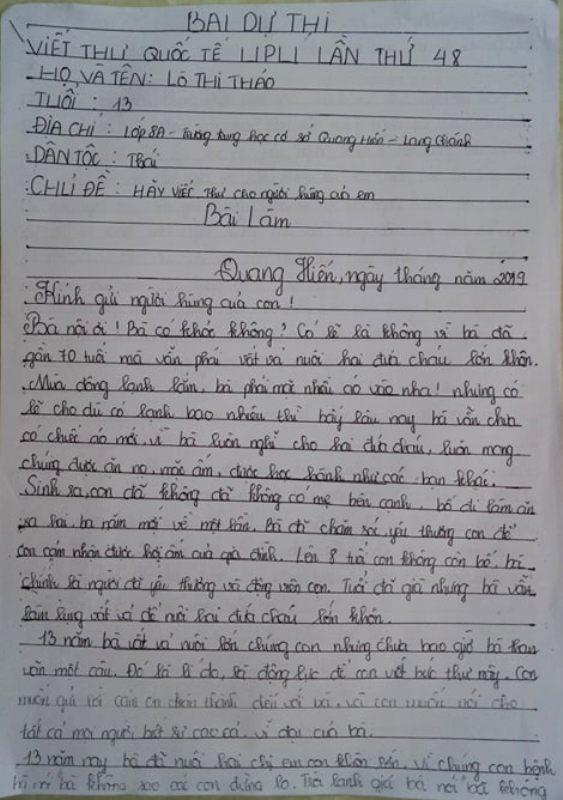 BÀI DỰ THI
VIẾT THƯ QUỐC TẾ UPU LẦN THỨ 48
HỌ VÀ TÊN: LÒ THỊ THẢO
TUỔI : 13
ĐỊA CHỈ : Lớp 8A - Trường trung học cơ sở Quang Hiến - Lang Chánh
DÂN TỘC : Thái
CHỦ ĐỀ : HÃY VIẾT THƯ CHO người hùng của em
Bài Làm
Quang Hiến, ngày tháng năm 2019
Kính gửi người hùng của con !
Bà nội ơi ! Bà có khỏe không ? Có lẽ là không vì bà đã
gần 70 tuổi mà vẫn phải vất vả nuôi hai đứa cháu lớn khôn.
Mùa đông lạnh lắm, bà phải mặc nhiều áo vào nha ! nhưng có
lẽ cho dù có lạnh bao nhiêu thì bấy lâu nay bà vẫn chưa
có chiếc áo mới, vì bà luôn nghĩ cho hai đứa cháu, luôn mong
chúng được ăn no, mặc ấm, được học hành như các bạn khác.
Sinh ra, con đã không đã không có mẹ bên cạnh, bố đi làm ăn
xa hai, ba năm mới về một lần. Bà đã chăm sóc, yêu thương con để
con cảm nhận được hơi ấm của gia đình. Lên 8 tuổi con không còn bố, bà
chính là người đã yêu thương và động viên con. Tuổi đã già nhưng bà vẫn
làm lụng vất vả để nuôi hai đứa cháu lớn khôn.
13 năm bà vất vả nuôi lớn chúng con nhưng chưa bao giờ bà than
vãn một câu. Đó là lí do, là động lực để con viết bức thư này. Con
muốn gửi lời cảm ơn chân thành đến với bà, và con muốn nói cho
tất cả mọi người biết sự cao cả, vĩ đại của bà.
13 năm nay bà đã nuôi hai chị em con khôn lớn, vì chúng con bệnh
bà nói bà không sao các con đừng lo. Trời lạnh giá bà nói bà không